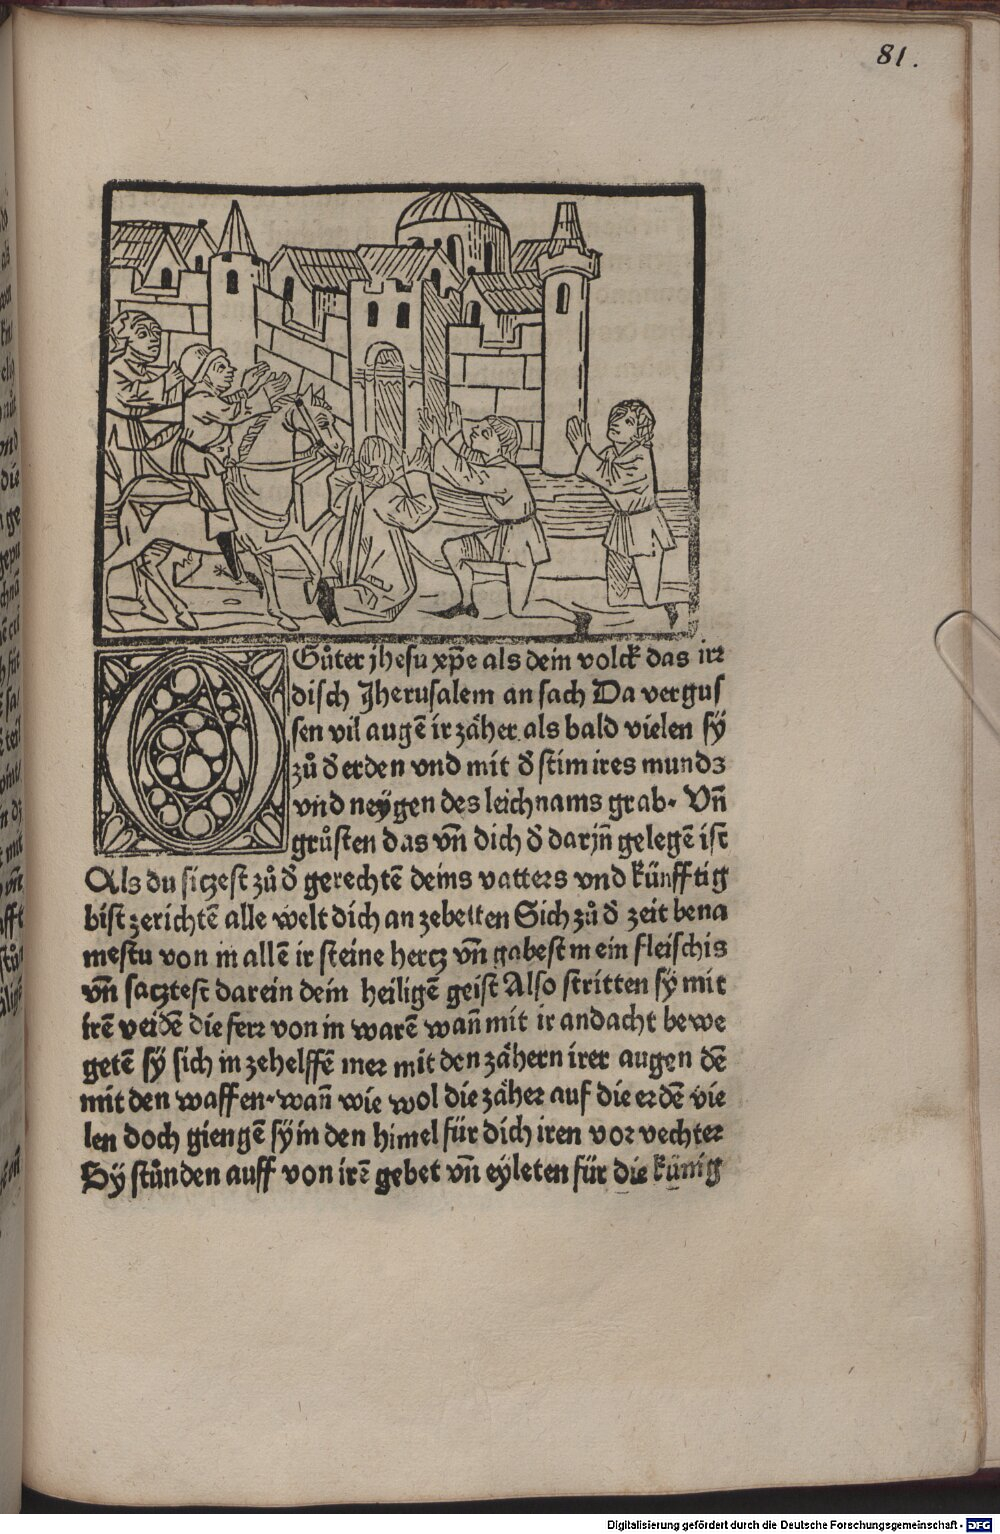 81.
O Gůter jhesu xp̄e als dein volck das irꝛ
disch Jherusalem an sach Da vergus
sen vil augē ir zäher als bald vielen sÿ
zů đ erden vnd mit đ stim ires mundꝫ
vnd neÿgen des leichnams grab. Vn̄
grůsten das vn̄ dich đ darjn̄ gelegē ist
Als du siczest zů đ gerechtē deins vatters vnd künfftig
bist zerichtē alle welt dich an zebetten Sich zů đ zeit bena
mestu von in allē ir steine hercz vn̄ gabest in ein fleischis
vn̄ sacztest darein dein heiligē geist Also stritten sÿ mit
irē veidē die ferꝛ von in warē wan̄ mit ir andacht bewe
getē sÿ sich in zehelffē mer mit den zähern irer augen dē
mit den waffen. wan̄ wie wol die zäher auf die erdē vie
len doch giengē sÿ in den himel für dich iren vor vechter
Sÿ stůnden auff von irē gebet vn̄ eÿleten für die künig
Digitalisierung gefördert durch die Deutsche Forschungsgemeinschaft - DFG